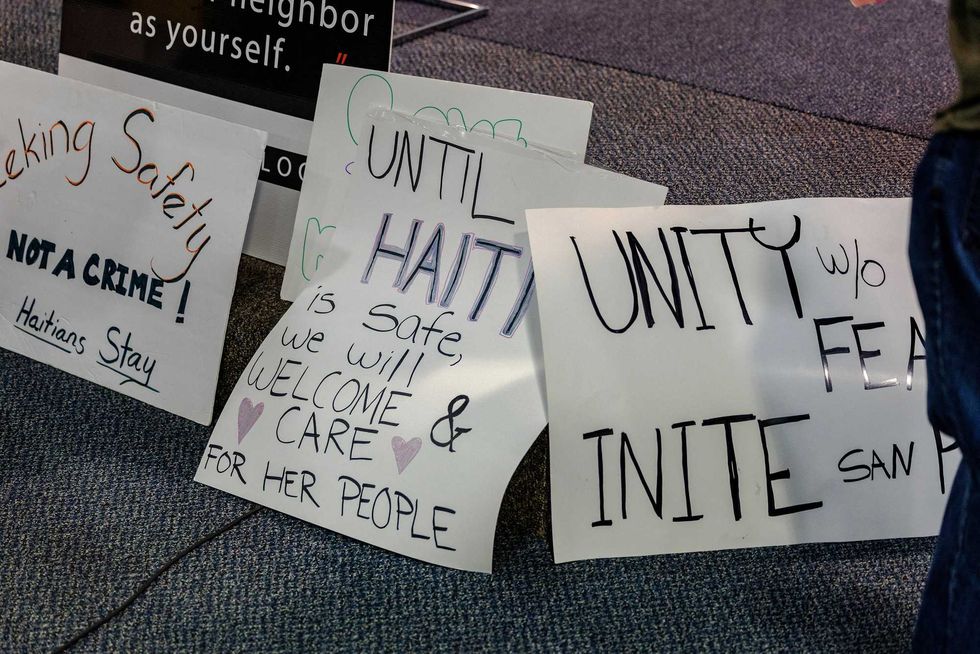 neighbor
as yourself.
"
LOC
eking Safety
NOT A CRIME!
Haitians Stay
UNTIL
HAITI
is safe,
we will
WELCOME &
CARE
FOR HER PEOPLE
UNITY w/o
FEA
INITE SAN P